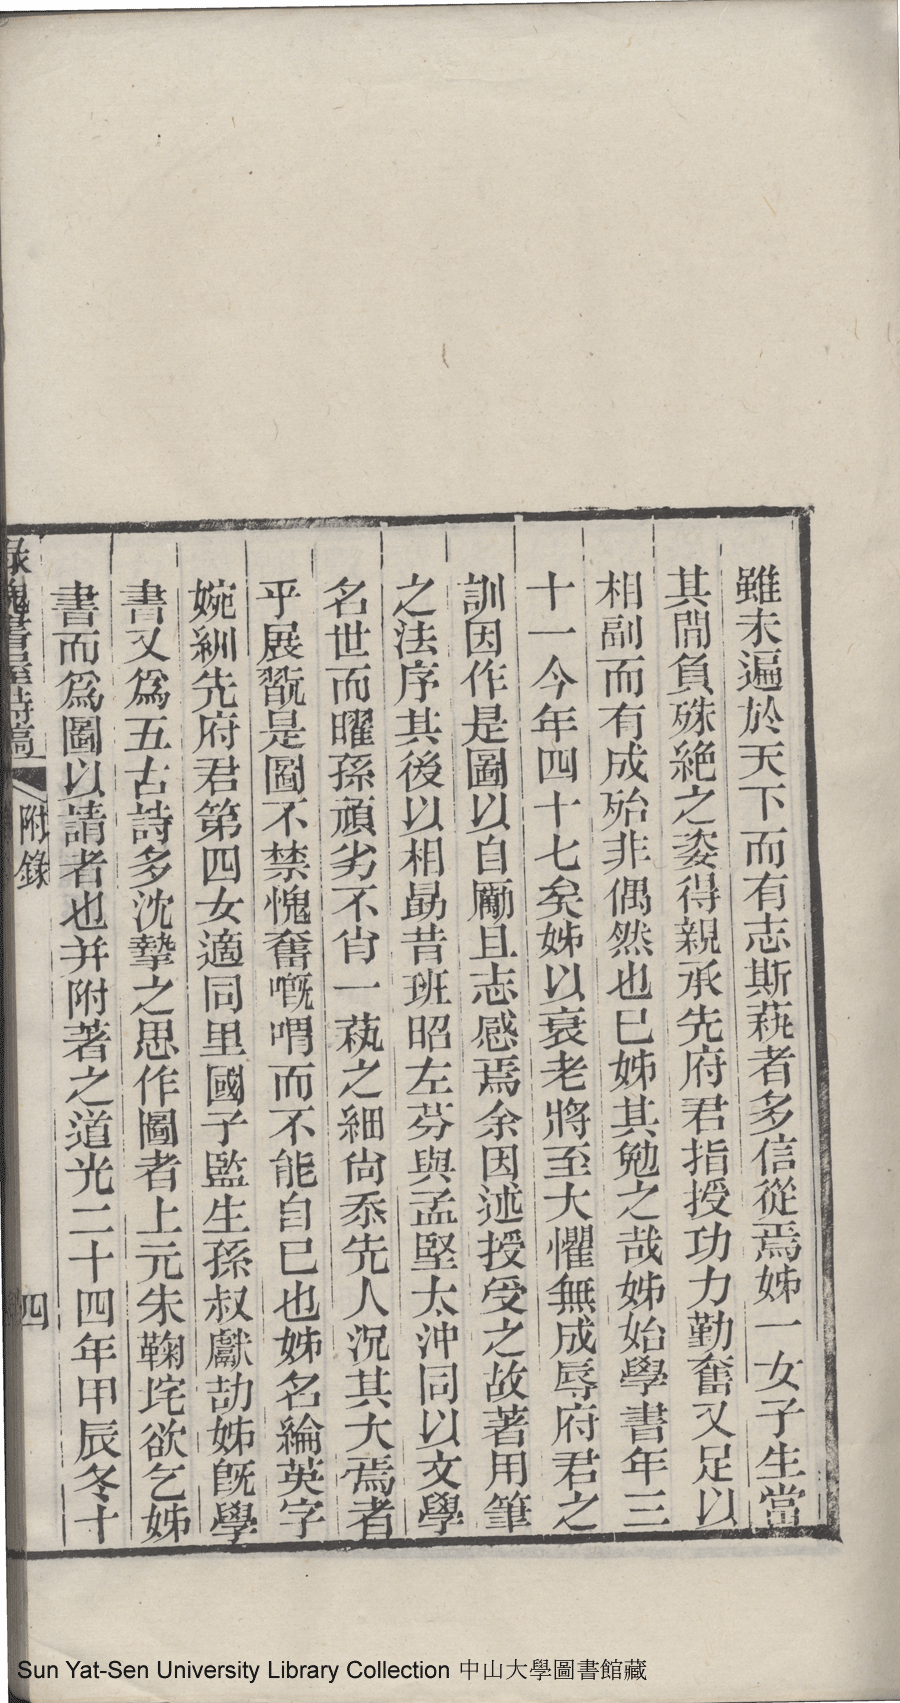 雖未遍於天下而有志斯蓺者多信從焉姊一女子生當
其閒負殊絕之姿得親承先府君指授功力勤奮又足以
相副而有成殆非偶然也已姊其勉之哉姊始學書年三
十一今年四十七矣姊以衰老將至大懼無成辱府君之
訓因作是圖以自勵且志感焉余因述授受之故著用筆
之法序其後以相勗昔班昭左芬與孟堅太沖同以文學
名世而曜孫頑劣不肖一蓺之細尙忝先人況其大焉者
乎展翫是圖不禁愧奮嘅喟而不能自已也姊名綸英字
婉紃先府君第四女適同里國子監生孫叔獻劼姊旣學
書又爲五古詩多沈摯之思作圖者上元朱鞠垞欲乞姊
書而爲圖以請者也并附著之道光二十四年甲辰冬十
綠槐書屋詩稿 附錄 四
Sun Yat-Sen University Library Collection 中山大學圖書館藏